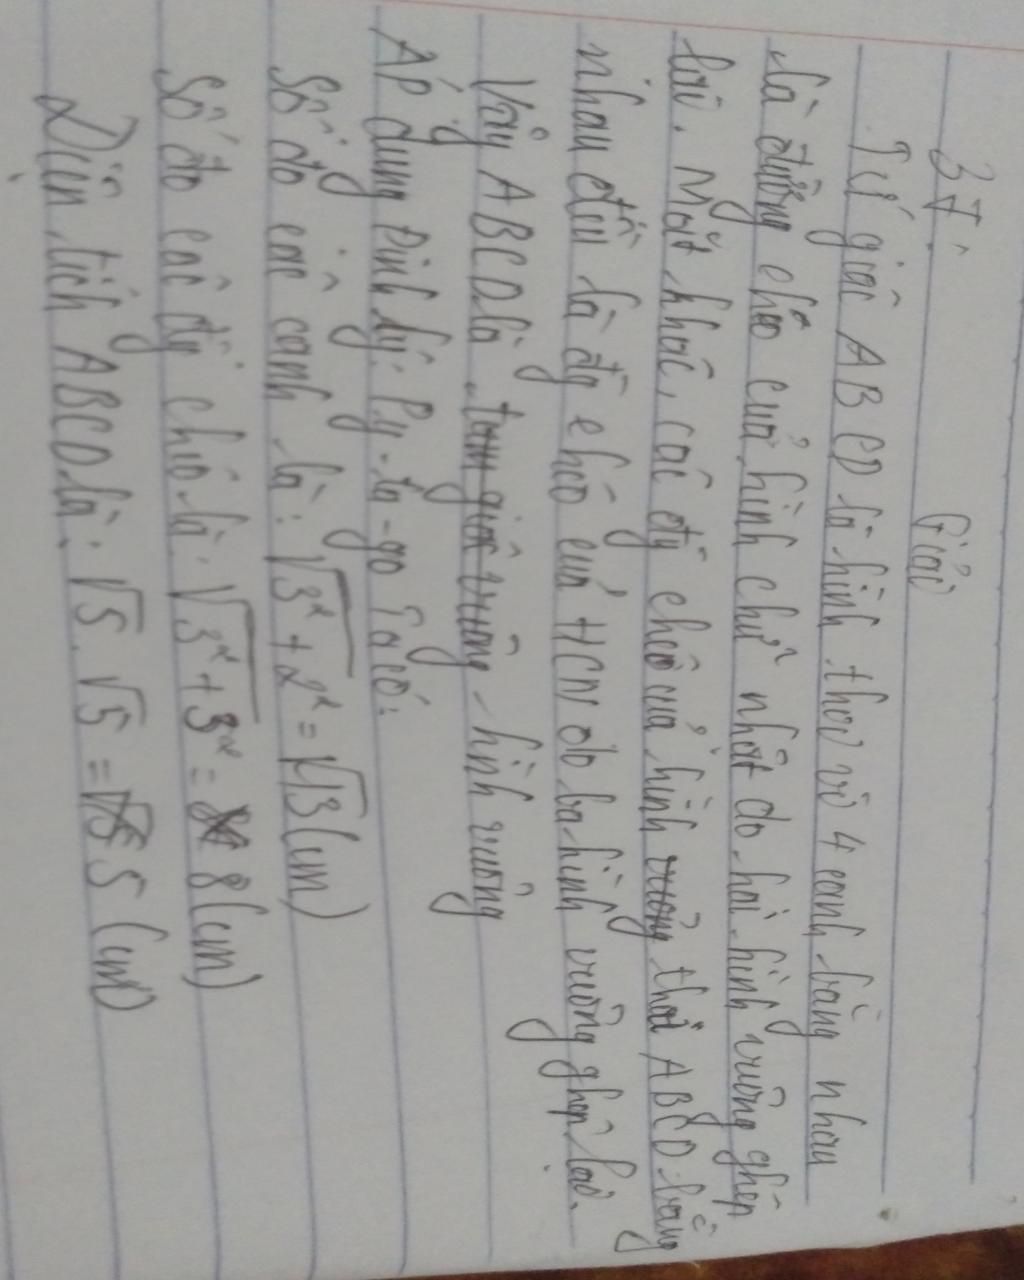 37.
Giải
Tứ giác ABCD là hình thoi vì 4 cạnh bằng nhau
là đường chéo của hình chữ nhật do hai hình vuông ghép
lại. Mặt khác, các đg chéo của hình vuông thoi ABCD bằng
nhau đều là đg chéo của HCN do ba hình vuông ghép lại.
Vậy ABCD là tam giác vuông hình vuông
Áp dụng Định lý Py-ta-go Ta có:
Số đo các cạnh là: √3² + 2² = √13 (cm)
Số đo các đg chéo là: √3² + 3² = 8 (cm)
Diện tích ABCD là: √5 . √5 = √5 5 (cm)